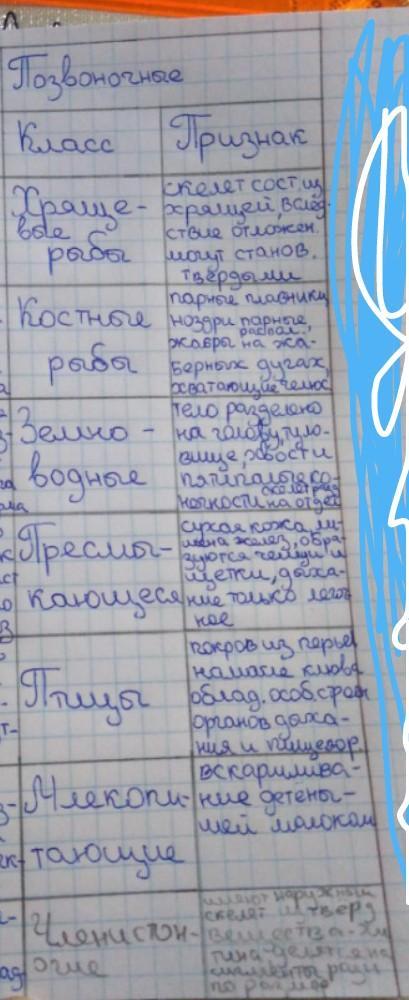 Позвоночные
Класс
Признак
Хряще-
вые
рыбы
скелет сост. из
хрящей, вслед-
ствие отложен.
могут станов.
твёрдыми
Костные
рыбы
парные плавники
ноздри парные,
распол.
жабры на жа-
берных дугах,
хватающие челюс
Земно-
водные
тело разделено
на голову, туло-
вище, хвост и
пятипалые ко-
нечности
на отдел
Пресмы-
кающиеся
сухая кожа, ли-
шена желез, обра-
зуются чешуи и
щитки, дыха-
ние только легоч
ное
Птицы
покров из перьев
наличие клюва
облад. особ. строен
органов дыха-
ния и пищевар.
Млекопи-
тающие
вскармлива-
ние детены-
шей молоком
Членистон-
огие
имеют наружный
скелет из тверд
вещества-хи
тина-делятся на
сегменты разн
по разме